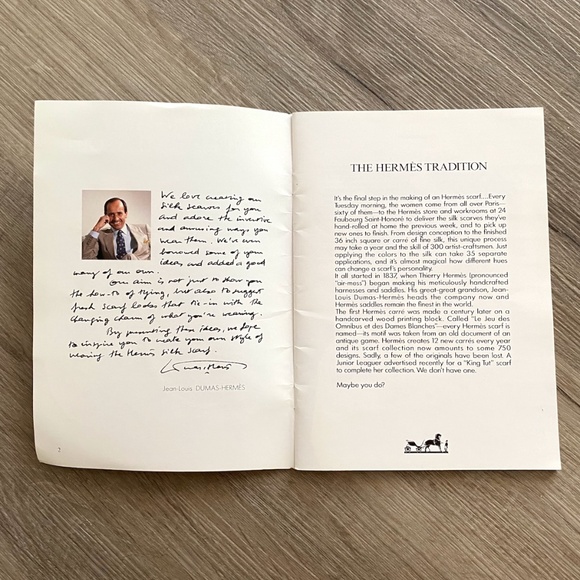 We love creating our
silk scarves for you
and adore the inventive
and amusing ways you
wear them. We've even
borrowed some of your
ideas and added a good
many of our own.
Our aim is not just to show you
the how-to of tying, but also to suggest
fresh scarf looks that tie-in with the
changing charm of what you're wearing.
By promoting these ideas, we hope
to inspire you to create your own style of
wearing the Hermès silk scarf.
Jean-Louis DUMAS-HERMÈS
THE HERMÈS TRADITION
It's the final step in the making of an Hermès scarf....Every
Tuesday morning, the women come from all over Paris—
sixty of them—to the Hermès store and workrooms at 24
Faubourg Saint-Honoré to deliver the silk scarves they've
hand-rolled at home the previous week, and to pick up
new ones to finish. From design conception to the finished
36 inch square or carré of fine silk, this unique process
may take a year and the skill of 300 artist-craftsmen. Just
applying the colors to the silk can take 35 separate
applications, and it's almost magical how different hues
can change a scarf's personality.
It all started in 1837, when Thierry Hermès (pronounced
"air-mess") began making his meticulously handcrafted
harnesses and saddles. His great-great grandson, Jean-
Louis Dumas-Hermès heads the company now and
Hermès saddles remain the finest in the world.
The first Hermès carré was made a century later on a
handcarved wood printing block. Called "Le Jeu des
Omnibus et des Dames Blanches"—every Hermès scarf is
named—its motif was taken from an old document of an
antique game. Hermès creates 12 new carrés every year
and its scarf collection now amounts to some 750
designs. Sadly, a few of the originals have been lost. A
Junior Leaguer advertised recently for a "King Tut" scarf
to complete her collection. We don't have one.
Maybe you do?